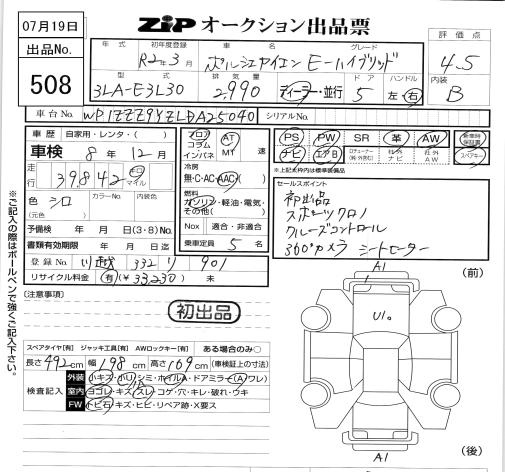 07月19日
出品No.
508
ZiP オークション出品票
年式 初年度登録 車名 グレード
R2年3月 ポルシェカイエン E-ハイブリッド
評価点
4.5
内装
B
型式 排気量 ドア ハンドル
3LA-E3L30 2,990 ディーラー・並行 5 左・右
車台No. WP1ZZZ9YZLDA25040 シリアルNo.
車歴 自家用・レンタ・( )
車検 8年12月
走行 39,842 キロ マイル
色 シロ カラーNo. 内装色
(元色)
予備検 年 月 日(3・8)No.
書類有効期限 年 月 日迄
登録No. 川越 332 り 901
リサイクル料金 有(¥33,230) 未
フロア コラム インパネ
AT MT 速
冷房
無・C・AC・AAC
燃料
ガソリン・軽油・電気・その他( )
Nox 適合・非適合
乗車定員 5 名
PS PW SR 革 AW 新車時保証書
ナビ エアB 社外ナビ 社外AW スペアキー
※上記太枠内は標準装備品
セールスポイント
初出品
スポーツクロノ
クルーズコントロール
360°カメラ シートヒーター
※ご記入の際はボールペンで強くご記入下さい。
[注意事項]
初出品
スペアタイヤ[有] ジャッキ工具[有] AWロックキー[有] ある場合のみ○
長さ492cm 幅198cm 高さ169cm (車検証上の寸法)
検査記入
外装 小キズ・小リ・シミ・ホイルA・ドアミラー(A・ワレ)
室内 ヨゴレ・キズ・スレ・コゲ・穴・キレ・破れ・ウキ
FW トビ石・キズ・ヒビ・リペア跡・X要ス
A1
(前)
U1。
A1
(後)